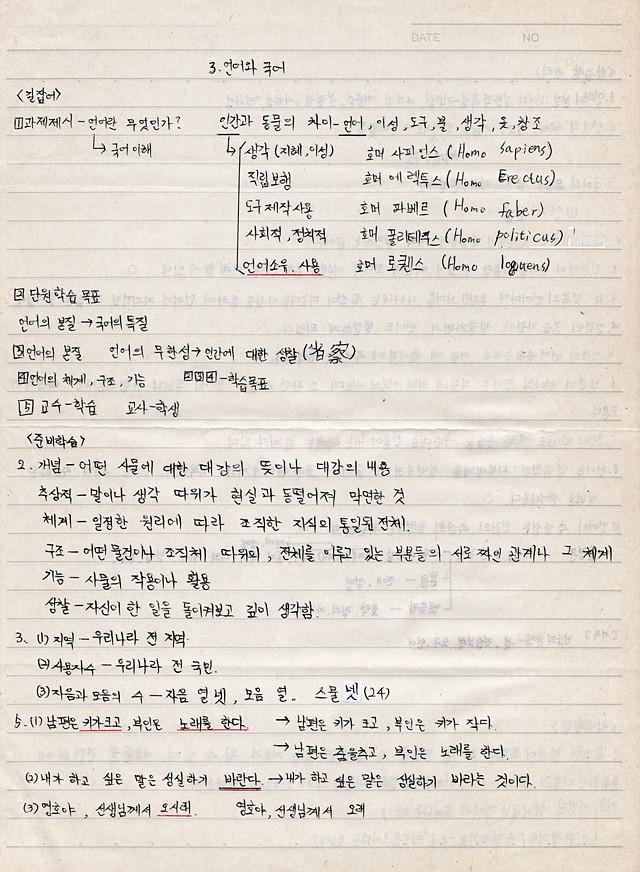 DATE NO
3. 언어와 국어
<길잡이>
1 과제제시 - 언어란 무엇인가? 인간과 동물의 차이 - 언어, 이성, 도구, 불, 생각, 옷, 창조
↳ 국어 이해 생각 (지혜, 이성) 호머 사피언스 (Homo sapiens)
직립보행 호머 에렉투스 (Homo Erectus)
도구 제작 사용 호머 파베르 (Homo faber)
사회적, 정치적 호머 폴리테쿠스 (Homo politicus)
언어소유, 사용 호머 로퀜스 (Homo loguens)
2 단원 학습 목표
언어의 본질 → 국어의 특질
3 언어의 본질 언어의 무한성 → 인간에 대한 성찰 (省察)
4 언어의 체계, 구조, 기능 2 3 4 - 학습목표
5 교수 - 학습 교사 - 학생
<준비학습>
2. 개념 - 어떤 사물에 대한 대강의 뜻이나 대강의 내용
추상적 - 말이나 생각 따위가 현실과 동떨어져 막연한 것
체계 - 일정한 원리에 따라 조직한 지식의 통일된 전체.
구조 - 어떤 물건이나 조직체 따위의, 전체를 이루고 있는 부분들의 서로 짜인 관계나 그 체계
기능 - 사물의 작용이나 활용
성찰 - 자신이 한 일을 돌이켜보고 깊이 생각함.
3. (1) 지역 - 우리나라 전 지역
(2) 사용자수 - 우리나라 전 국민.
(3) 자음과 모음의 수 - 자음 열넷, 모음 열. 스물 넷 (24)
5. (1) 남편은 키가 크고, 부인은 노래를 한다. → 남편은 키가 크고, 부인은 키가 작다.
→ 남편은 춤을 추고, 부인은 노래를 한다.
(2) 내가 하고 싶은 말은 성실하기 바란다. → 내가 하고 싶은 말은 성실하기 바라는 것이다.
(3) 영호야, 선생님께서 오시래. 영호야, 선생님께서 오래